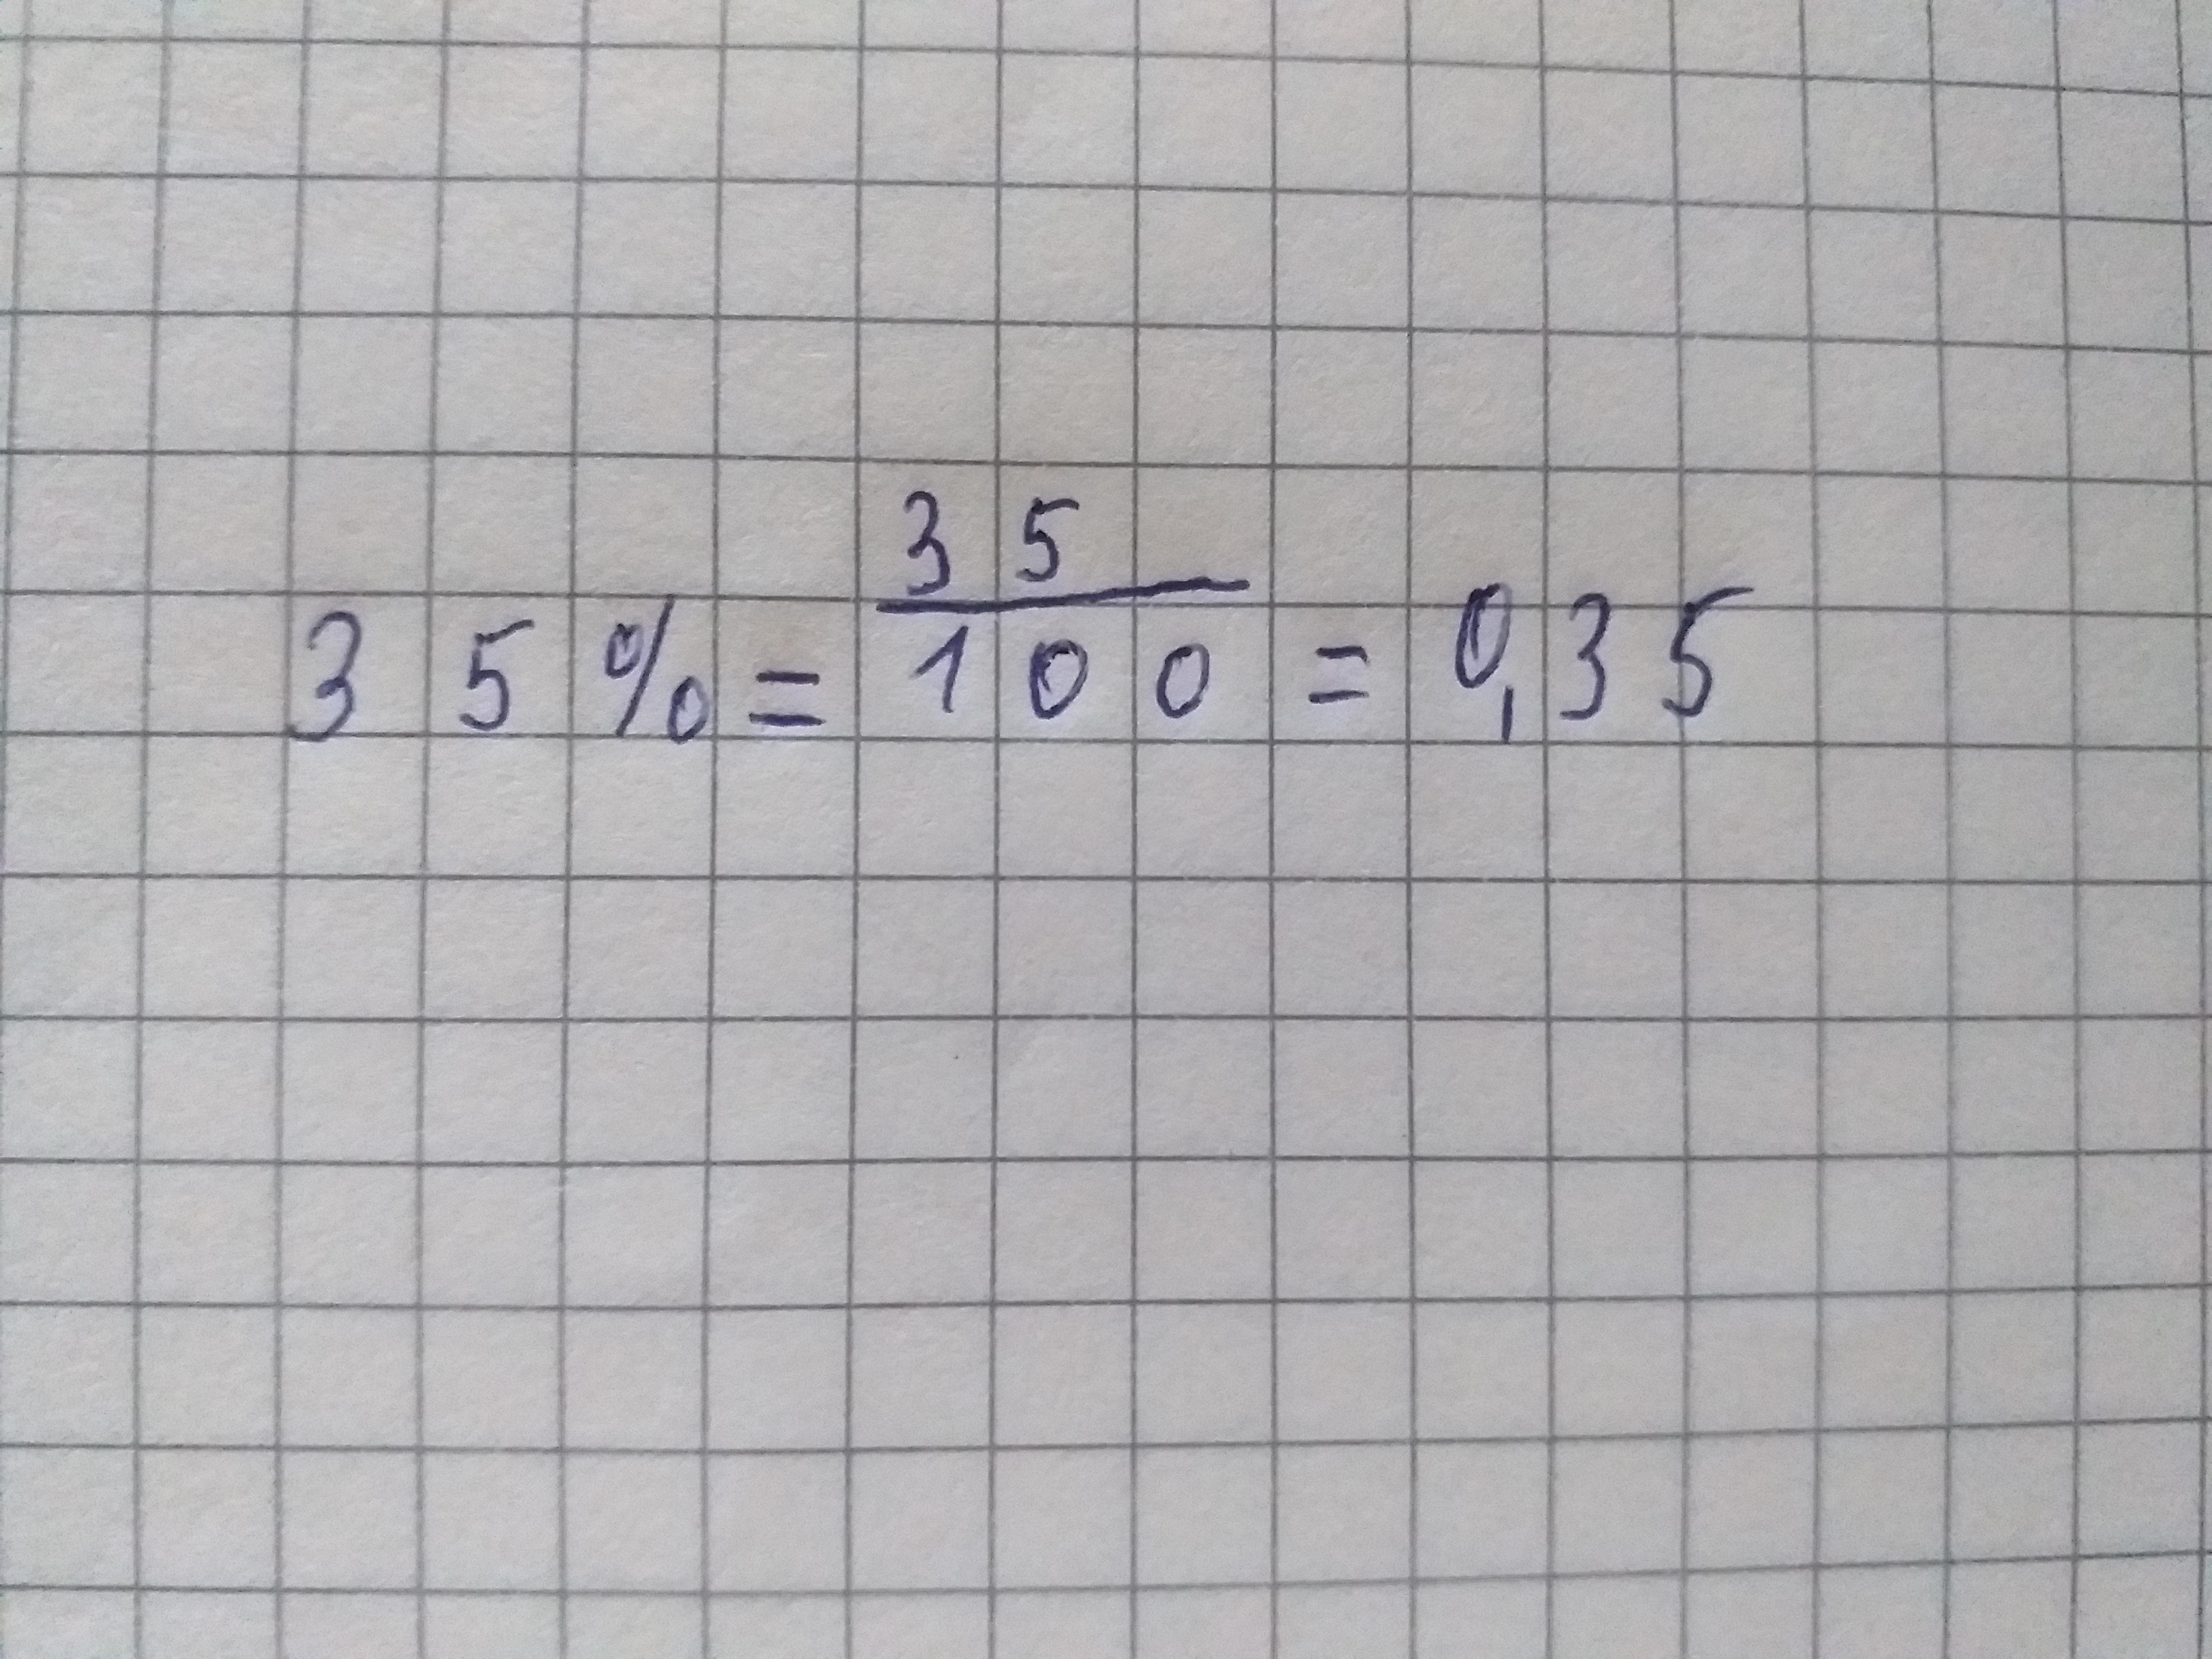 35% = 35/100 = 0,35